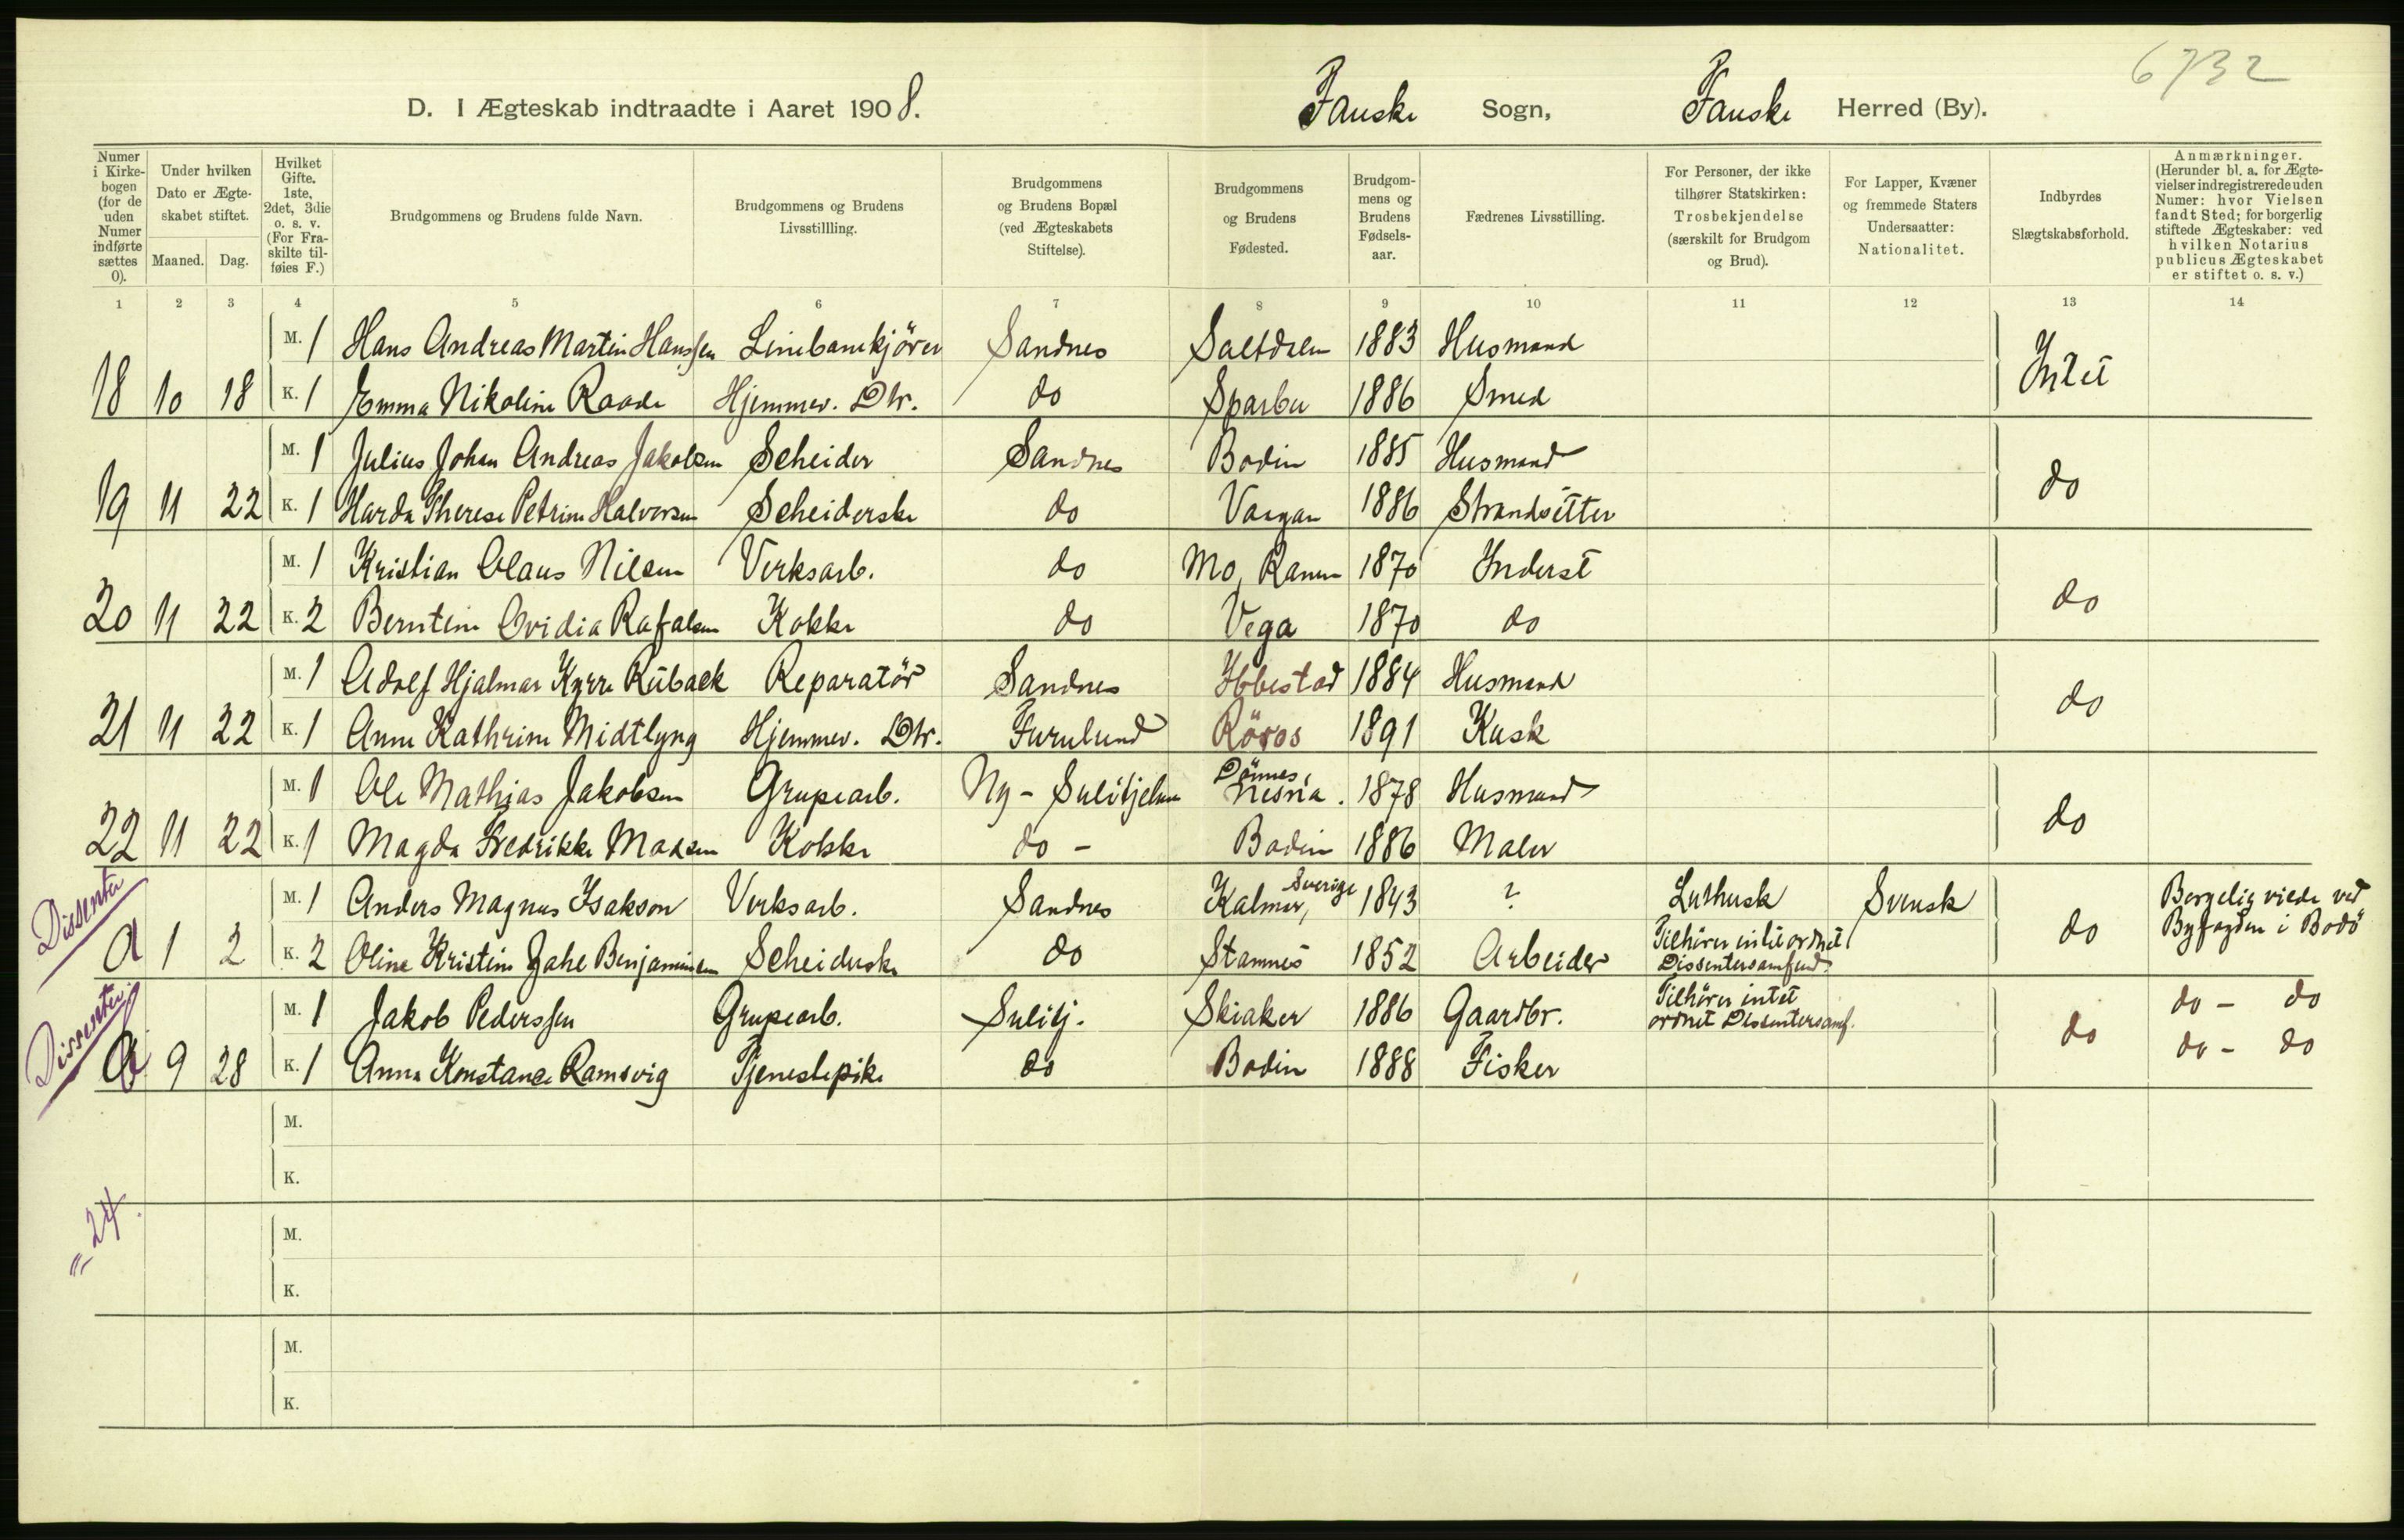 6732
D. I Ægteskab indtraadte i Aaret 1908. Fauske Sogn, Fauske Herred (By).
Numer i Kirkebogen (for de uden Numer indførte sættes 0).
Under hvilken Dato er Ægteskabet stiftet. Maaned. Dag.
Hvilket Gifte. 1ste, 2det, 3die o. s. v. (For Fraskilte tilføies F.)
Brudgommens og Brudens fulde Navn.
Brudgommens og Brudens Livsstillling.
Brudgommens og Brudens Bopæl (ved Ægteskabets Stiftelse).
Brudgommens og Brudens Fødested.
Brudgommens og Brudens Fødselsaar.
Fædrenes Livsstilling.
For Personer, der ikke tilhører Statskirken: Trosbekjendelse (særskilt for Brudgom og Brud).
For Lapper, Kvæner og fremmede Staters Undersaatter: Nationalitet.
Indbyrdes Slægtskabsforhold.
Anmærkninger. (Herunder bl. a. for Ægtevielser indregistrerede uden Numer: hvor Vielsen fandt Sted; for borgerlig stiftede Ægteskaber: ved hvilken Notarius publicus Ægteskabet er stiftet o. s. v.)
1 2 3 4 5 6 7 8 9 10 11 12 13 14
M. 1 Hans Andreas Martin Hanssen Linebanekjörer Sandnes Saltdalen 1883 Husmand Intet
18 10 18 K. 1 Emma Nikoline Raade Hjemmev. Dtr. do Sparbu 1886 Smed
M. 1 Julius Johan Andreas Jakobsen Scheider Sandnes Bodin 1885 Husmand do
19 11 22 K. 1 Harda Therese Petrine Halvorsen Scheiderske do Vaagan 1886 Strandsitter
M. 1 Kristian Olaus Nilsen Verksarb. do Mo, Ranen 1870 Inderst do
20 11 22 K. 2 Berntine Ovidia Rafalsen Kokke do Vega 1870 do
M. 1 Adolf Hjalmar Kyrre Rübaek Reparatör Sandnes Ibbestad 1884 Husmand do
21 11 22 K. 1 Anne Kathrine Midtlyng Hjemmev. Dtr. Furulund Röros 1891 Kusk
M. 1 Ole Mathias Jakobsen Grupearb. Ny-Sulitjelma Dönnes, Nesna. 1878 Husmand do
22 11 22 K. 1 Magda Fredrikke Madsen Kokke do - Bodin 1886 Maler
Dissenter
M. 1 Anders Magnus Isakson Verksarb. Sandnes Kalmar, Sverige 1843 ? Luthersk Svensk do Borgelig viede ved Byfogden i Bodö
a 1 2 K. 2 Oline Kristine Zahe Benjaminsen Scheiderske do Stamnes 1852 Arbeider Tilhörer intet ordnet Dissentersamfund.
Dissenter
M. 1 Jakob Pederssen Grupearb. Sulitj. Skiaker 1886 Gaardbr. Tilhörer intet ordnet Dissentersamf. do do - do
a 9 28 K. 1 Anna Konstance Ramsvig Tjenestepike do Bodin 1888 Fisker do - do
M.
K.
= 24.
M.
K.
M.
K.